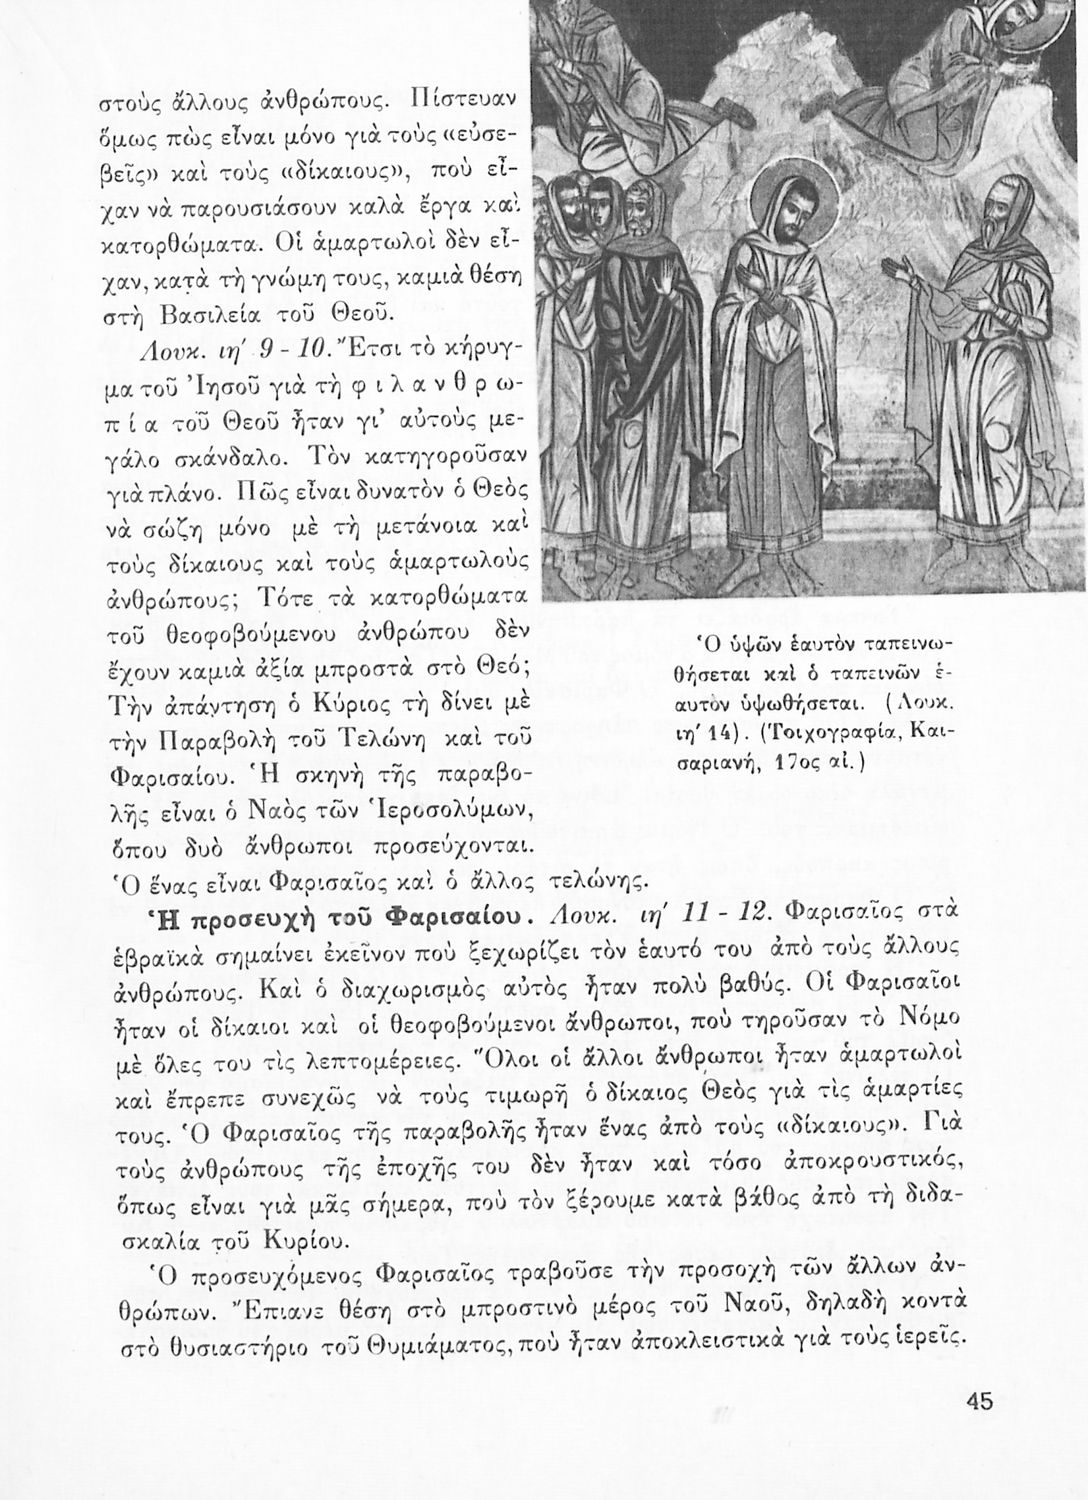 στοὺς ἄλλους ἀνθρώπους. Πίστευαν
ὅμως πὼς εἶναι μόνο γιὰ τοὺς «εὐσε-
βεῖς» καὶ τοὺς «δίκαιους», ποὺ εἶ-
χαν νὰ παρουσιάσουν καλὰ ἔργα καὶ
κατορθώματα. Οἱ ἁμαρτωλοὶ δὲν εἶ-
χαν, κατὰ τὴ γνώμη τους, καμιὰ θέση
στὴ Βασιλεία τοῦ Θεοῦ.
Λουκ. ιη′ 9 - 10. Ἔτσι τὸ κήρυγ-
μα τοῦ Ἰησοῦ γιὰ τὴ φ ι λ α ν θ ρ ω-
π ί α τοῦ Θεοῦ ἦταν γι’ αὐτοὺς με-
γάλο σκάνδαλο. Τὸν κατηγοροῦσαν
γιὰ πλάνο. Πῶς εἶναι δυνατὸν ὁ Θεὸς
νὰ σώζη μόνο μὲ τὴ μετάνοια καὶ
τοὺς δίκαιους καὶ τοὺς ἁμαρτωλοὺς
ἀνθρώπους; Τότε τὰ κατορθώματα
τοῦ θεοφοβούμενου ἀνθρώπου δὲν
ἔχουν καμιὰ ἀξία μπροστὰ στὸ Θεό;
Τὴν ἀπάντηση ὁ Κύριος τὴ δίνει μὲ
τὴν Παραβολὴ τοῦ Τελώνη καὶ τοῦ
Φαρισαίου. Ἡ σκηνὴ τῆς παραβο-
λῆς εἶναι ὁ Ναὸς τῶν Ἱεροσολύμων,
ὅπου δυὸ ἄνθρωποι προσεύχονται.
Ὁ ἕνας εἶναι Φαρισαῖος καὶ ὁ ἄλλος τελώνης.
Ὁ ὑψῶν ἑαυτὸν ταπεινω-
θήσεται καὶ ὁ ταπεινῶν ἑ-
αυτὸν ὑψωθήσεται. (Λουκ.
ιη′ 14). (Τοιχογραφία, Και-
σαριανή, 17ος αἰ.)
Ἡ προσευχὴ τοῦ Φαρισαίου. Λουκ. ιη′ 11 - 12. Φαρισαῖος στὰ
ἑβραϊκὰ σημαίνει ἐκεῖνον ποὺ ξεχωρίζει τὸν ἑαυτό του ἀπὸ τοὺς ἄλλους
ἀνθρώπους. Καὶ ὁ διαχωρισμὸς αὐτὸς ἦταν πολὺ βαθύς. Οἱ Φαρισαῖοι
ἦταν οἱ δίκαιοι καὶ οἱ θεοφοβούμενοι ἄνθρωποι, ποὺ τηροῦσαν τὸ Νόμο
μὲ ὅλες του τὶς λεπτομέρειες. Ὅλοι οἱ ἄλλοι ἄνθρωποι ἦταν ἁμαρτωλοὶ
καὶ ἔπρεπε συνεχῶς νὰ τοὺς τιμωρῆ ὁ δίκαιος Θεὸς γιὰ τὶς ἁμαρτίες
τους. Ὁ Φαρισαῖος τῆς παραβολῆς ἦταν ἕνας ἀπὸ τοὺς «δίκαιους». Γιὰ
τοὺς ἀνθρώπους τῆς ἐποχῆς του δὲν ἦταν καὶ τόσο ἀποκρουστικός,
ὅπως εἶναι γιὰ μᾶς σήμερα, ποὺ τὸν ξέρουμε κατὰ βάθος ἀπὸ τὴ διδα-
σκαλία τοῦ Κυρίου.
Ὁ προσευχόμενος Φαρισαῖος τραβοῦσε τὴν προσοχὴ τῶν ἄλλων ἀν-
θρώπων. Ἔπιανε θέση στὸ μπροστινὸ μέρος τοῦ Ναοῦ, δηλαδὴ κοντὰ
στὸ θυσιαστήριο τοῦ Θυμιάματος, ποὺ ἦταν ἀποκλειστικὰ γιὰ τοὺς ἱερεῖς.
45